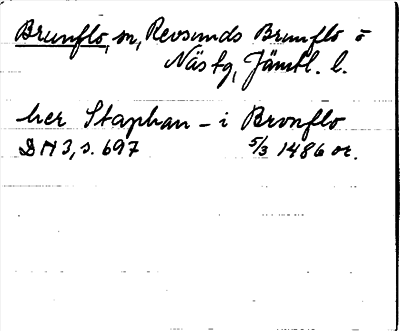 Brunflo, sn, Revsunds Brunflo o
Näs tg, Jämtl. l.
her Staphan – i Bronflo
DN 3, s. 697 5/3 1486 or.